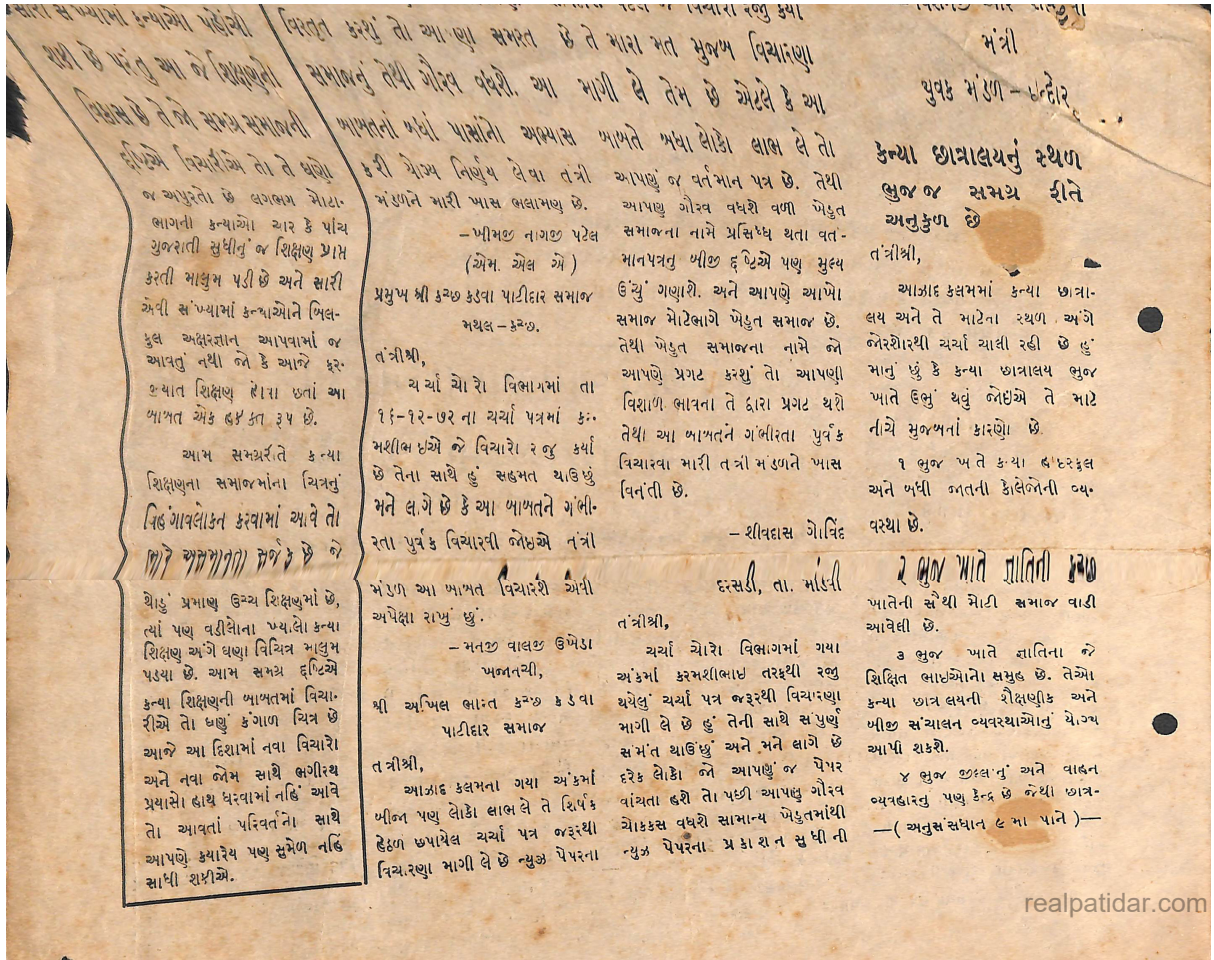 સારી સંખ્યામાં કન્યાઓ પહોંચી
શકી છે પરંતુ આ જે શિક્ષણનો
વિકાસ છે તે જો સમગ્ર સમાજની
દ્રષ્ટિએ વિચારીએ તો તે ઘણો
જ અપુરતો છે લગભગ મોટા-
ભાગની કન્યાઓ ચાર કે પાંચ
ગુજરાતી સુધીનું જ શિક્ષણ પ્રાપ્ત
કરતી માલુમ પડી છે અને સારી
એવી સંખ્યામાં કન્યાઓને બિલ-
કુલ અક્ષરજ્ઞાન આપવામાં જ
આવતું નથી જો કે આજે ફર-
જ્યાત શિક્ષણ હોવા છતાં આ
બાબત એક હકીકત રૂપ છે.
આમ સમગ્રરીતે કન્યા
શિક્ષણના સમાજમાંના ચિત્રનું
વિહંગાવલોકન કરવામાં આવે તો
ભારે અસમાનતા સર્જક છે જે
થોડું પ્રમાણ ઉચ્ચ શિક્ષણમાં છે,
ત્યાં પણ વડીલોના ખ્યાલો કન્યા
શિક્ષણ અંગે ઘણા વિચિત્ર માલુમ
પડયા છે. આમ સમગ્ર દ્રષ્ટિએ
કન્યા શિક્ષણની બાબતમાં વિચા-
રીએ તો ઘણું કંગાળ ચિત્ર છે
આજે આ દિશામાં નવા વિચારો
અને નવા જોમ સાથે ભગીરથ
પ્રયાસો હાથ ધરવામાં નહિં આવે
તો આવતાં પરિવર્તનો સાથે
આપણે કયારેય પણ સુમેળ નહિં
સાધી શકીએ.
વિસ્તૃત કરશું તો આપણા સમસ્ત
સમાજનું તેથી ગૌરવ વધશે. આ
બાબતનાં બધાં પાસાંનો અભ્યાસ
કરી યોગ્ય નિર્ણય લેવા તંત્રી
મંડળને મારી ખાસ ભલામણ છે.
-ખીમજી નાગજી પટેલ
(એમ. એલ એ)
પ્રમુખ શ્રી કચ્છ કડવા પાટીદાર સમાજ
મથલ-કચ્છ.
તંત્રીશ્રી,
ચર્ચા ચોરો વિભાગમાં તા
૧૬-૧૨-૭૨ ના ચર્ચા પત્રમાં કર-
મશીભાઇએ જે વિચારો રજુ કર્યા
છે તેના સાથે હું સહમત થાઉં છું
મને લાગે છે કે આ બાબતને ગંભી-
રતા પુર્વક વિચારવી જોઇએ તંત્રી
મંડળ આ બાબત વિચારશે એવી
અપેક્ષા રાખું છું.
-મનજી વાલજી ઉખેડા
ખજાનચી,
શ્રી અખિલ ભારત કચ્છ કડવા
પાટીદાર સમાજ
તંત્રીશ્રી,
આઝાદ કલમના ગયા અંકમાં
બીજા પણ લોકો લાભ લે તે શિર્ષક
હેઠળ છપાયેલ ચર્ચા પત્ર જરૂરથી
વિચારણા માગી લે છે ન્યુઝ પેપરના
છે તે મારા મત મુજબ વિચારણા
માગી લે તેમ છે એટલે કે આ
બાબતે બધા લોકો લાભ લે તો
આપણું જ વર્તમાન પત્ર છે. તેથી
આપણા ગૌરવ વધશે વળી ખેડુત
સમાજના નામે પ્રસિધ્ધ થતા વર્ત-
માનપત્રનુ બીજી દ્રષ્ટિએ પણ મુલ્ય
ઉંચું ગણાશે. અને આપણે આખો
સમાજ મોટેભાગે ખેડુત સમાજ છે.
તેથી ખેડુત સમાજના નામે જો
આપણે પ્રગટ કરશું તો આપણી
વિશાળ ભાવના તે દ્વારા પ્રગટ થશે
તેથી આ બાબતને ગંભીરતા પુર્વક
વિચારવા મારી તંત્રી મંડળને ખાસ
વિનંતી છે.
-શીવદાસ ગોવિંદ
દરસડી, તા. માંડવી
તંત્રીશ્રી,
ચર્ચા ચોરો વિભાગમાં ગયા
અંકમાં કરમશીભાઇ તરફથી રજી
થયેલું ચર્ચા પત્ર જરૂરથી વિચારણા
માગી લે છે હું તેની સાથે સંપુર્ણ
સંમંત થાઉંછું અને મને લાગે છે
દરેક લોકો જો આપણું જ પેપર
વાંચતા હશે તો પછી આપણુ ગૌરવ
ચોકકસ વધશે સામાન્ય ખેડુતમાંથી
ન્યુઝ પેપરના પ્રકાશન સુધીની
મંત્રી
યુવક મંડળ - ઇન્દોર
કન્યા છાત્રાલયનું સ્થળ
ભુજ જ સમગ્ર રીતે
અનુકુળ છે
તંત્રીશ્રી,
આઝાદ કલમમાં કન્યા છાત્રા-
લય અને તે માટેના સ્થળ અંગે
જોરશોરથી ચર્ચા ચાલી રહી છે હું
માનું છું કે કન્યા છાત્રાલય ભુજ
ખાતે ઉભું થવું જોઇએ તે માટે
નીચે મુજબનાં કારણો છે.
૧ ભુજ ખાતે કન્યા હાઇસ્કુલ
અને બધી જાતની કોલેજોની વ્ય-
વસ્થા છે.
૨ ભુજ ખાતે જ્ઞાતિની કચ્છ
ખાતેની સૌથી મોટી સમાજ વાડી
આવેલી છે.
૩ ભુજ ખાતે જ્ઞાતિના જે
શિક્ષિત ભાઇઓનો સમુહ છે. તેઓ
કન્યા છાત્રાલયની શૈક્ષણીક અને
બીજી સંચાલન વ્યવસ્થાઓનું યોગ્ય
આપી શકશે.
૪ ભુજ જીલ્લાનું અને વાહન
વ્યવહારનુ પણ કેન્દ્ર છે જેથી છાત્ર-
—( અનુસંસધાન ૯ મા પાને )—
realpatidar.com